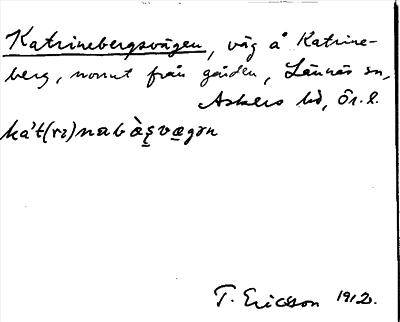 Katrinebergsvägen, väg å Katrine-
berg, norrut från gården, Lännäs sn,
Askers hd, Ör. l.
ka't(rı)nabà̀ȩvægən
T. Ericsson 1912.